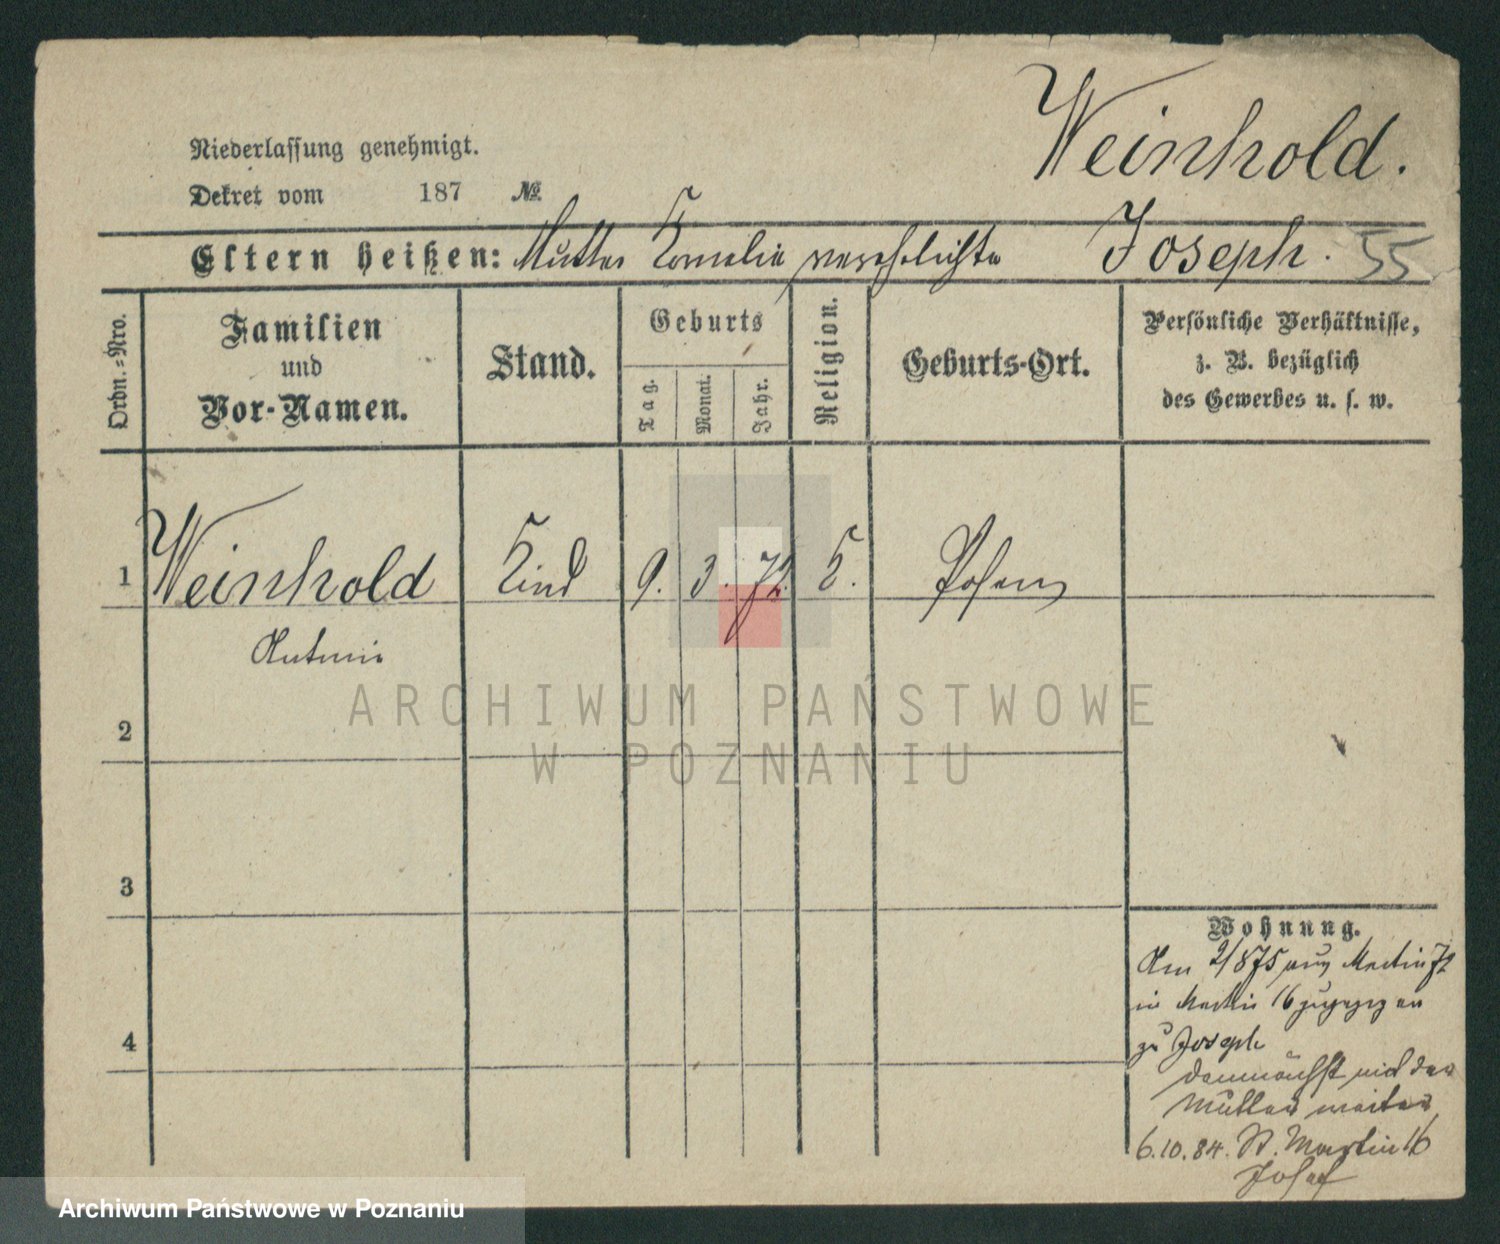 Weinhold.
Niederlassung genehmigt.
Dekret vom 187 №
Eltern heißen: Mutter Kornelia verehelichte Joseph. 55
Ordn.=Nro.
Familien
und
Vor-Namen.
Stand.
Geburts
Tag.
Monat.
Jahr.
Religion.
Geburts-Ort.
Persönliche Verhältnisse,
z. B. bezüglich
des Gewerbes u. s. w.
1 Weinhold Kind 9. 3. 72. K. Posen
Antonie
2
3
4
Wohnung.
Am 2/875 aus Martin 72
in Martin 16 zugezogen
zu Joseph
demnächst mit der
Mutter weiter
6.10.84. St. Martin 16
Josef
ARCHIWUM PAŃSTWOWE
W POZNANIU
Archiwum Państwowe w Poznaniu